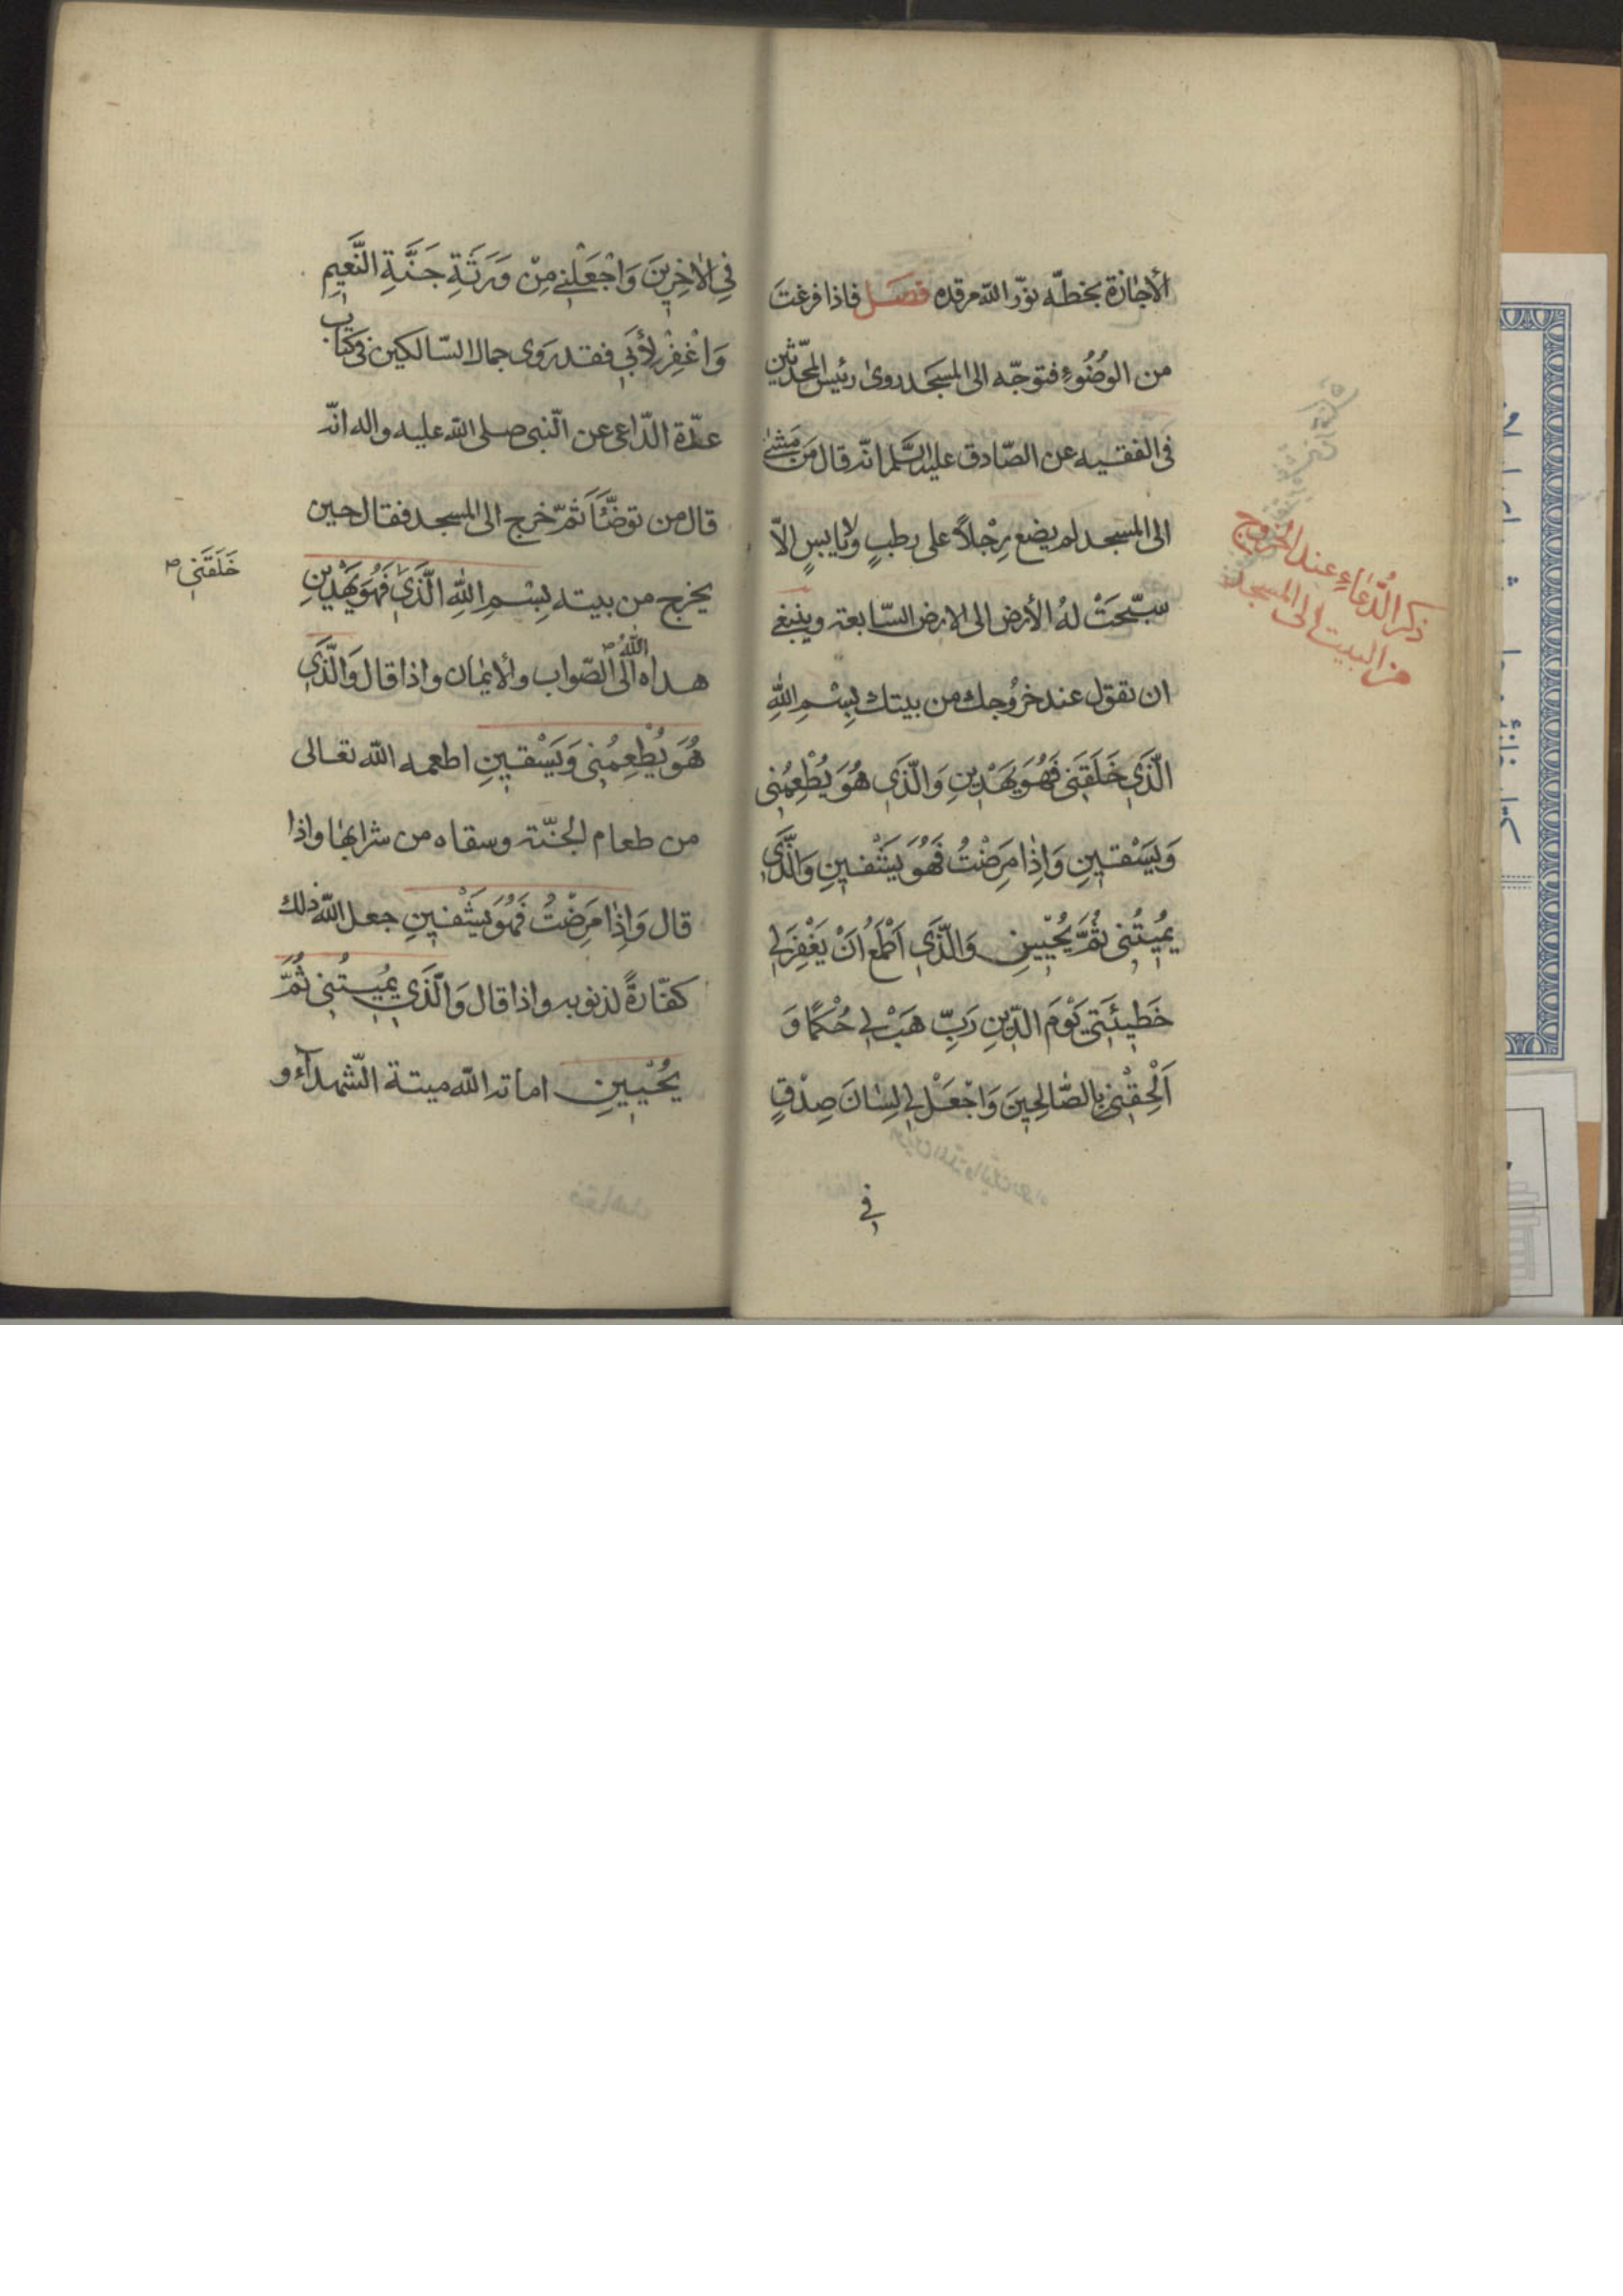 الأجازة بخطّه نوّر الله مرقده فصل فاذا فرغتَ
من الوُضُوءِ فتوجّه الى المسجد روىٰ رئيس المحدّثين
فى الفقيه عن الصّادق عليه السّلم انّه قال مَن مَشىٰ
الى المسجد لم يضع رِجْلاً على رطبٍ ولا يابسٍ الّا
سبّحَتْ لهُ الأرض الى الارض السّابعة وينبغى
ان تقول عند خروُجك من بيتك بِسْمِ اللهِ
الَّذى خَلَقَنى فَهُوَ يَهْدينِ وَالَّذى هُوَ يُطْعِمُنى
وَيَسْقينِ وَاِذٰا مَرِضْتُ فَهُوَ يَشْفينِ وَالَّذى
يُميتُنى ثُمَّ يُحْيينِ وَالَّذى اَطْمَعُ اَنْ يَغْفِرَ لى
خَطيئَتى يَوْمَ الدّينِ رَبِّ هَبْ لى حُكْمًا وَ
اَلْحِقْنى بِالصّٰالِحينَ وَاجْعَلْ لى لِسٰانَ صِدْقٍ
فى
ذكر الدُّعٰاءِ عند الخروج
من البيت الى المسجد
فِى الاٰخِرينَ وَاجْعَلْنى مِنْ وَرَثَةِ جَنَّةِ النَّعيمِ
وَاغْفِرْ لأَبى فقد رَوى جمال السّالكين فى كتاب
عدّة الدّاعى عن النّبى صلى الله عليه واله انّه
قال من توضَّأَ ثمّ خرج الى المسجد فقال حين
يخرج من بيته بِسْمِ اللهِ الَّذى فَهُوَ يَهْدينِ
خَلَقَنى صح
هداه اللهُ الى الصّواب والايمٰان واذا قال وَالَّذى
هُوَ يُطْعِمُنى وَيَسْقينِ اطعمه الله تعالى
من طعام الجنّة وسقاه من شرابهٰا واذا
قال وَاِذٰا مَرِضْتُ فَهُوَ يَشْفينِ جعل الله ذلك
كفّارةً لذنوبه واذا قال وَالَّذى يُميتُنى ثُمَّ
يُحْيينِ اماته الله ميتة الشّهدآء و